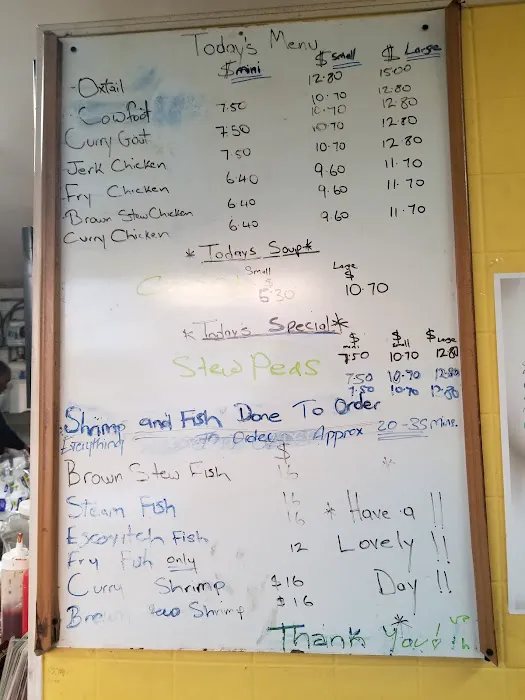 Today's Menu
$mini $small $ Large
Oxtail 12.80 15.00
Cowfoot 7.50 10.70 12.80
Curry Goat 7.50 10.70 12.80
Jerk Chicken 7.50 10.70 12.80
Fry Chicken 6.40 10.70 12.80
Brown Stew Chicken 6.40 9.60 11.70
Curry Chicken 6.40 9.60 11.70
9.60 11.70
* Todays Soup *
Small Large
$ $
5.30 10.70
* Today's Special *
$ mini $ small $ Large
7.50 10.70 12.80
Stew Peas
7.50 10.70 12.80
7.50 10.70 12.80
Shrimp and Fish Done To Order
Everything To Order Approx 20-35 Mins.
$
Brown Stew Fish 16
Steam Fish 16
16 * Have a !!
Escovitch Fish
Fry Fish only 12 Lovely !!
Curry Shrimp $16 Day !!
Stew Shrimp $16
Thank You!